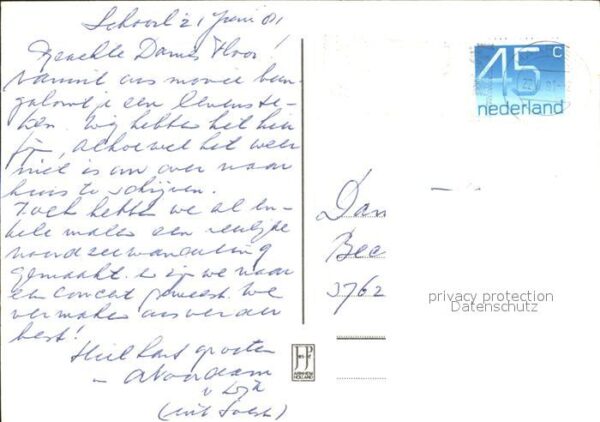 Schoorl 21 Juni '81
Geachte Dames Floor!
Vanuit ons mooie bun-
galowtje een levenste-
ken. Wij hebben het hier
fijn, alhoewel het weer
niet is om over naar
huis te schrijven.
Toch hebben we al en-
kele malen een
noordzeewandeling
gemaakt. en zijn we naar
een concert geweest. We
vermaken ons verder
best!
Hiel hart. groeten
v Dijk
(uit Soest)
45c
nederland
Dam
Bee
3762
privacy protection
Datenschutz
JosPé
ARNHEM
HOLLAND